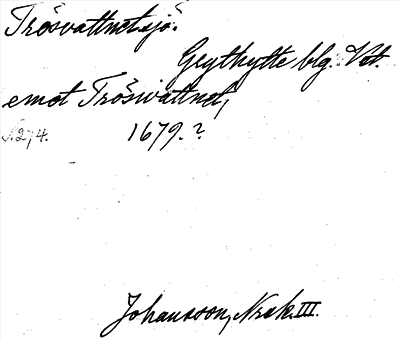 Trösvattnet. sjö.
Grythytte blg. Vst.
emot Trösivattnet,
S. 274. 1679.?
Johansson, Norsk. III.